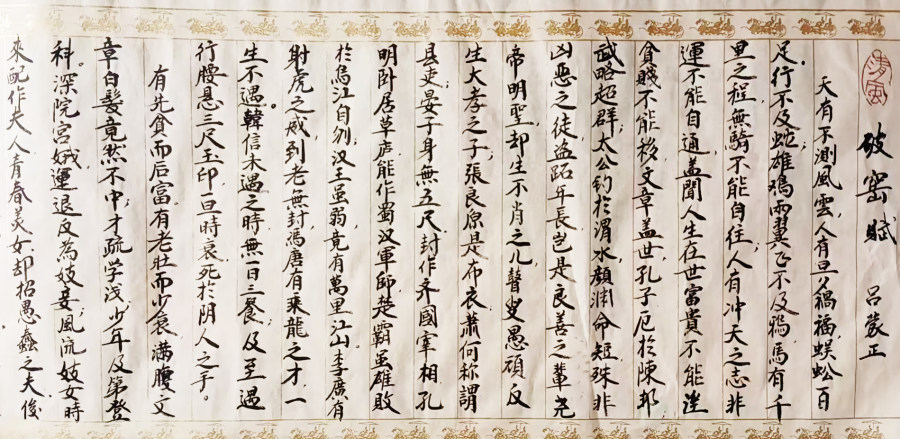 清風
破窑賦
吕蒙正
天有不测風雲,人有旦夕禍福,蜈蚣百
足,行不及蛇,雄鸡兩翼,飞不及鸦,馬有千
里之程,無騎不能自往,人有冲天之志,非
運不能自通,盖聞人生在世,富貴不能淫
貧賤不能移,文章盖世,孔子厄於陳邦,
武略超群,太公钓於渭水,顔渊命短,殊非
凶恶之徒,盗跖年長,岂是良善之輩,尧
帝明聖,却生不肖之儿,瞽叟愚頑,反
生大孝之子,張良原是布衣,蕭何称謂
县吏,晏子身無五尺,封作齐國宰相,孔
明卧居草庐,能作蜀汉軍師,楚霸虽雄,敗
於烏江自刎,汉王虽弱,竟有萬里江山,李廣有
射虎之威,到老無封,馮唐有乘龍之才,一
生不遇。韓信未遇之時,無一日三餐,及至遇
行,腰悬三尺玉印,一旦時衰,死於阴人之手。
有先貧而后富,有老壯而少衰,满腹文
章,白髮竟然不中,才疏学浅,少年及第登
科。深院宫娥,運退反為妓妾,風流妓女,時
來配作夫人,青春美女,却招愚蠢之夫,俊